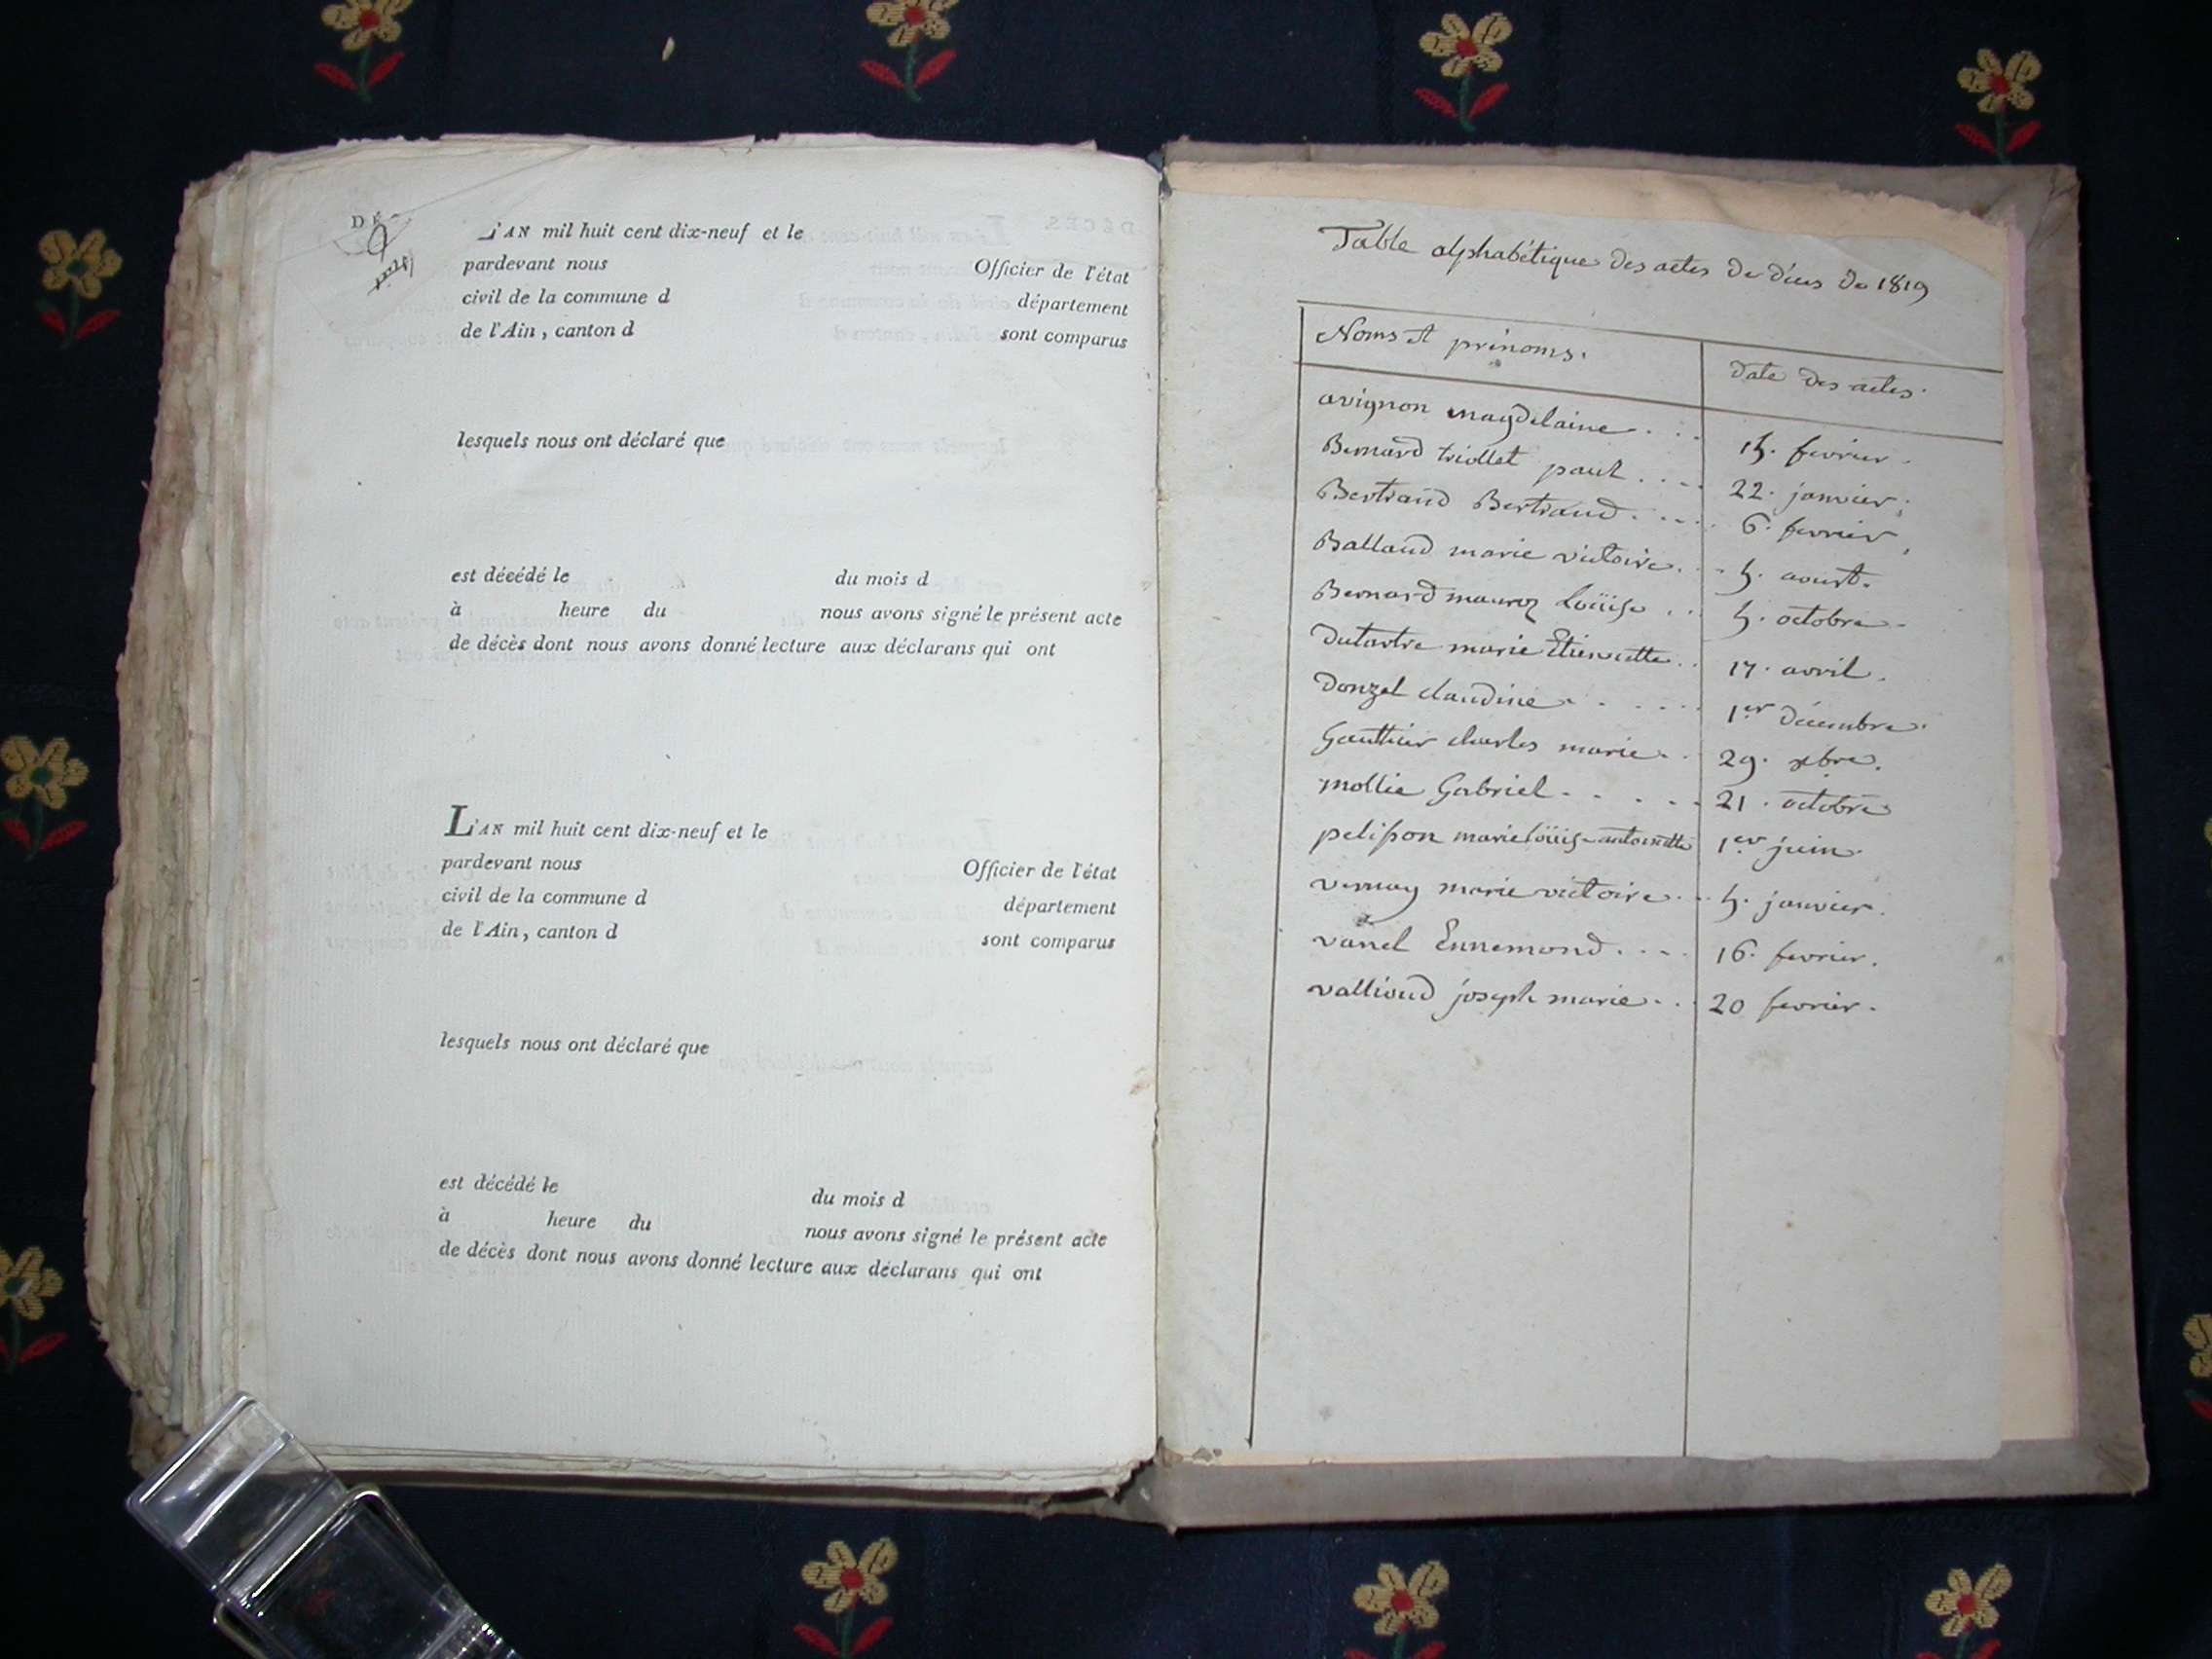 DÉ
L'AN mil huit cent dix-neuf et le
pardevant nous Officier de l'état
civil de la commune d département
de l'Ain, canton d sont comparus
lesquels nous ont déclaré que
est décédé le du mois d
à heure du nous avons signé le présent acte
de décès dont nous avons donné lecture aux déclarans qui ont
L'AN mil huit cent dix-neuf et le
pardevant nous Officier de l'état
civil de la commune d département
de l'Ain, canton d sont comparus
lesquels nous ont déclaré que
est décédé le du mois d
à heure du nous avons signé le présent acte
de décès dont nous avons donné lecture aux déclarans qui ont
Table alphabétique des actes de décès de 1819
Noms et prénoms. date des actes.
avignon magdelaine . . . février.
Bernard triollet paul . . . . 22. janvier.
Bertrand Bertrand . . . . 6. février.
Balland marie victoire . . 5. aoust.
Bernard mauroz Loüise . . 5. octobre.
Dutartre marie Etiennette . . 17. avril.
Donzel claudine . . . . . 1er décembre.
Gauthier charles marie . . 29. xbre.
mollie Gabriel . . . . . 21. octobre
pelisson marie loüise antoinette 1er juin.
vernay marie victoire . . 5. janvier.
vanel Ennemond . . . . 16. février.
vallioud joseph marie . . . 20 février.